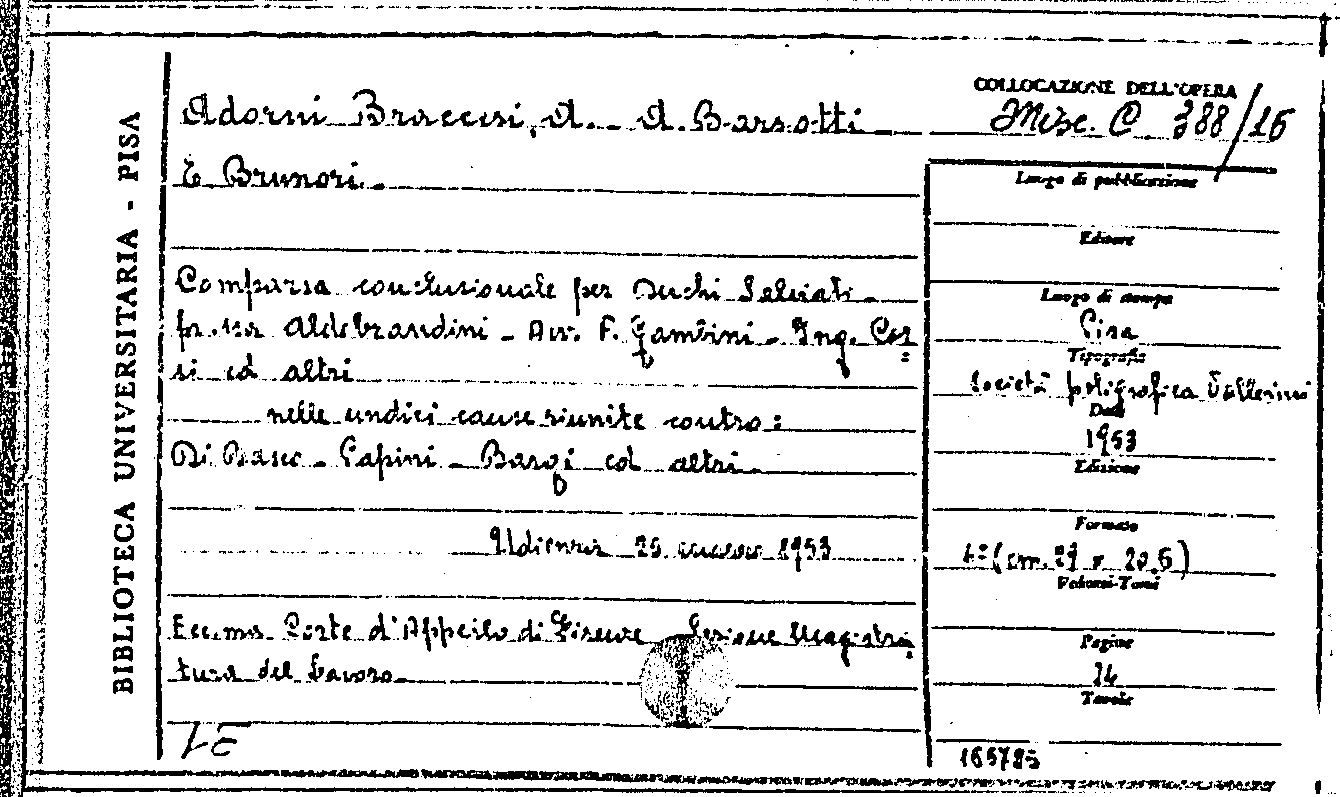 BIBLIOTECA UNIVERSITARIA - PISA
Adorni Braccesi, A. - A. Barsotti
E Brunori.
Comparsa conclusionale per Duchi Salviati -
Aldobrandini - Avv. F. Gambini - Ing. Cor
si ed altri
nelle undici cause riunite contro:
Di Basco - Papini - Bargi ed altri -
Udienza 25 1953
Ecc.ma Corte d'Appello di Firenze - Sezione Magistra
tura del Lavoro -
COLLOCAZIONE DELL'OPERA
Misc. C 388/16
Luogo di pubblicazione
Editore
Luogo di stampa
Pisa
Tipografia
Società poligrafica Vallerini
Data
1953
Edizione
Formato
4° (cm. 29 x 20.5)
Volumi-Tomi
Pagine
Tavole
165785